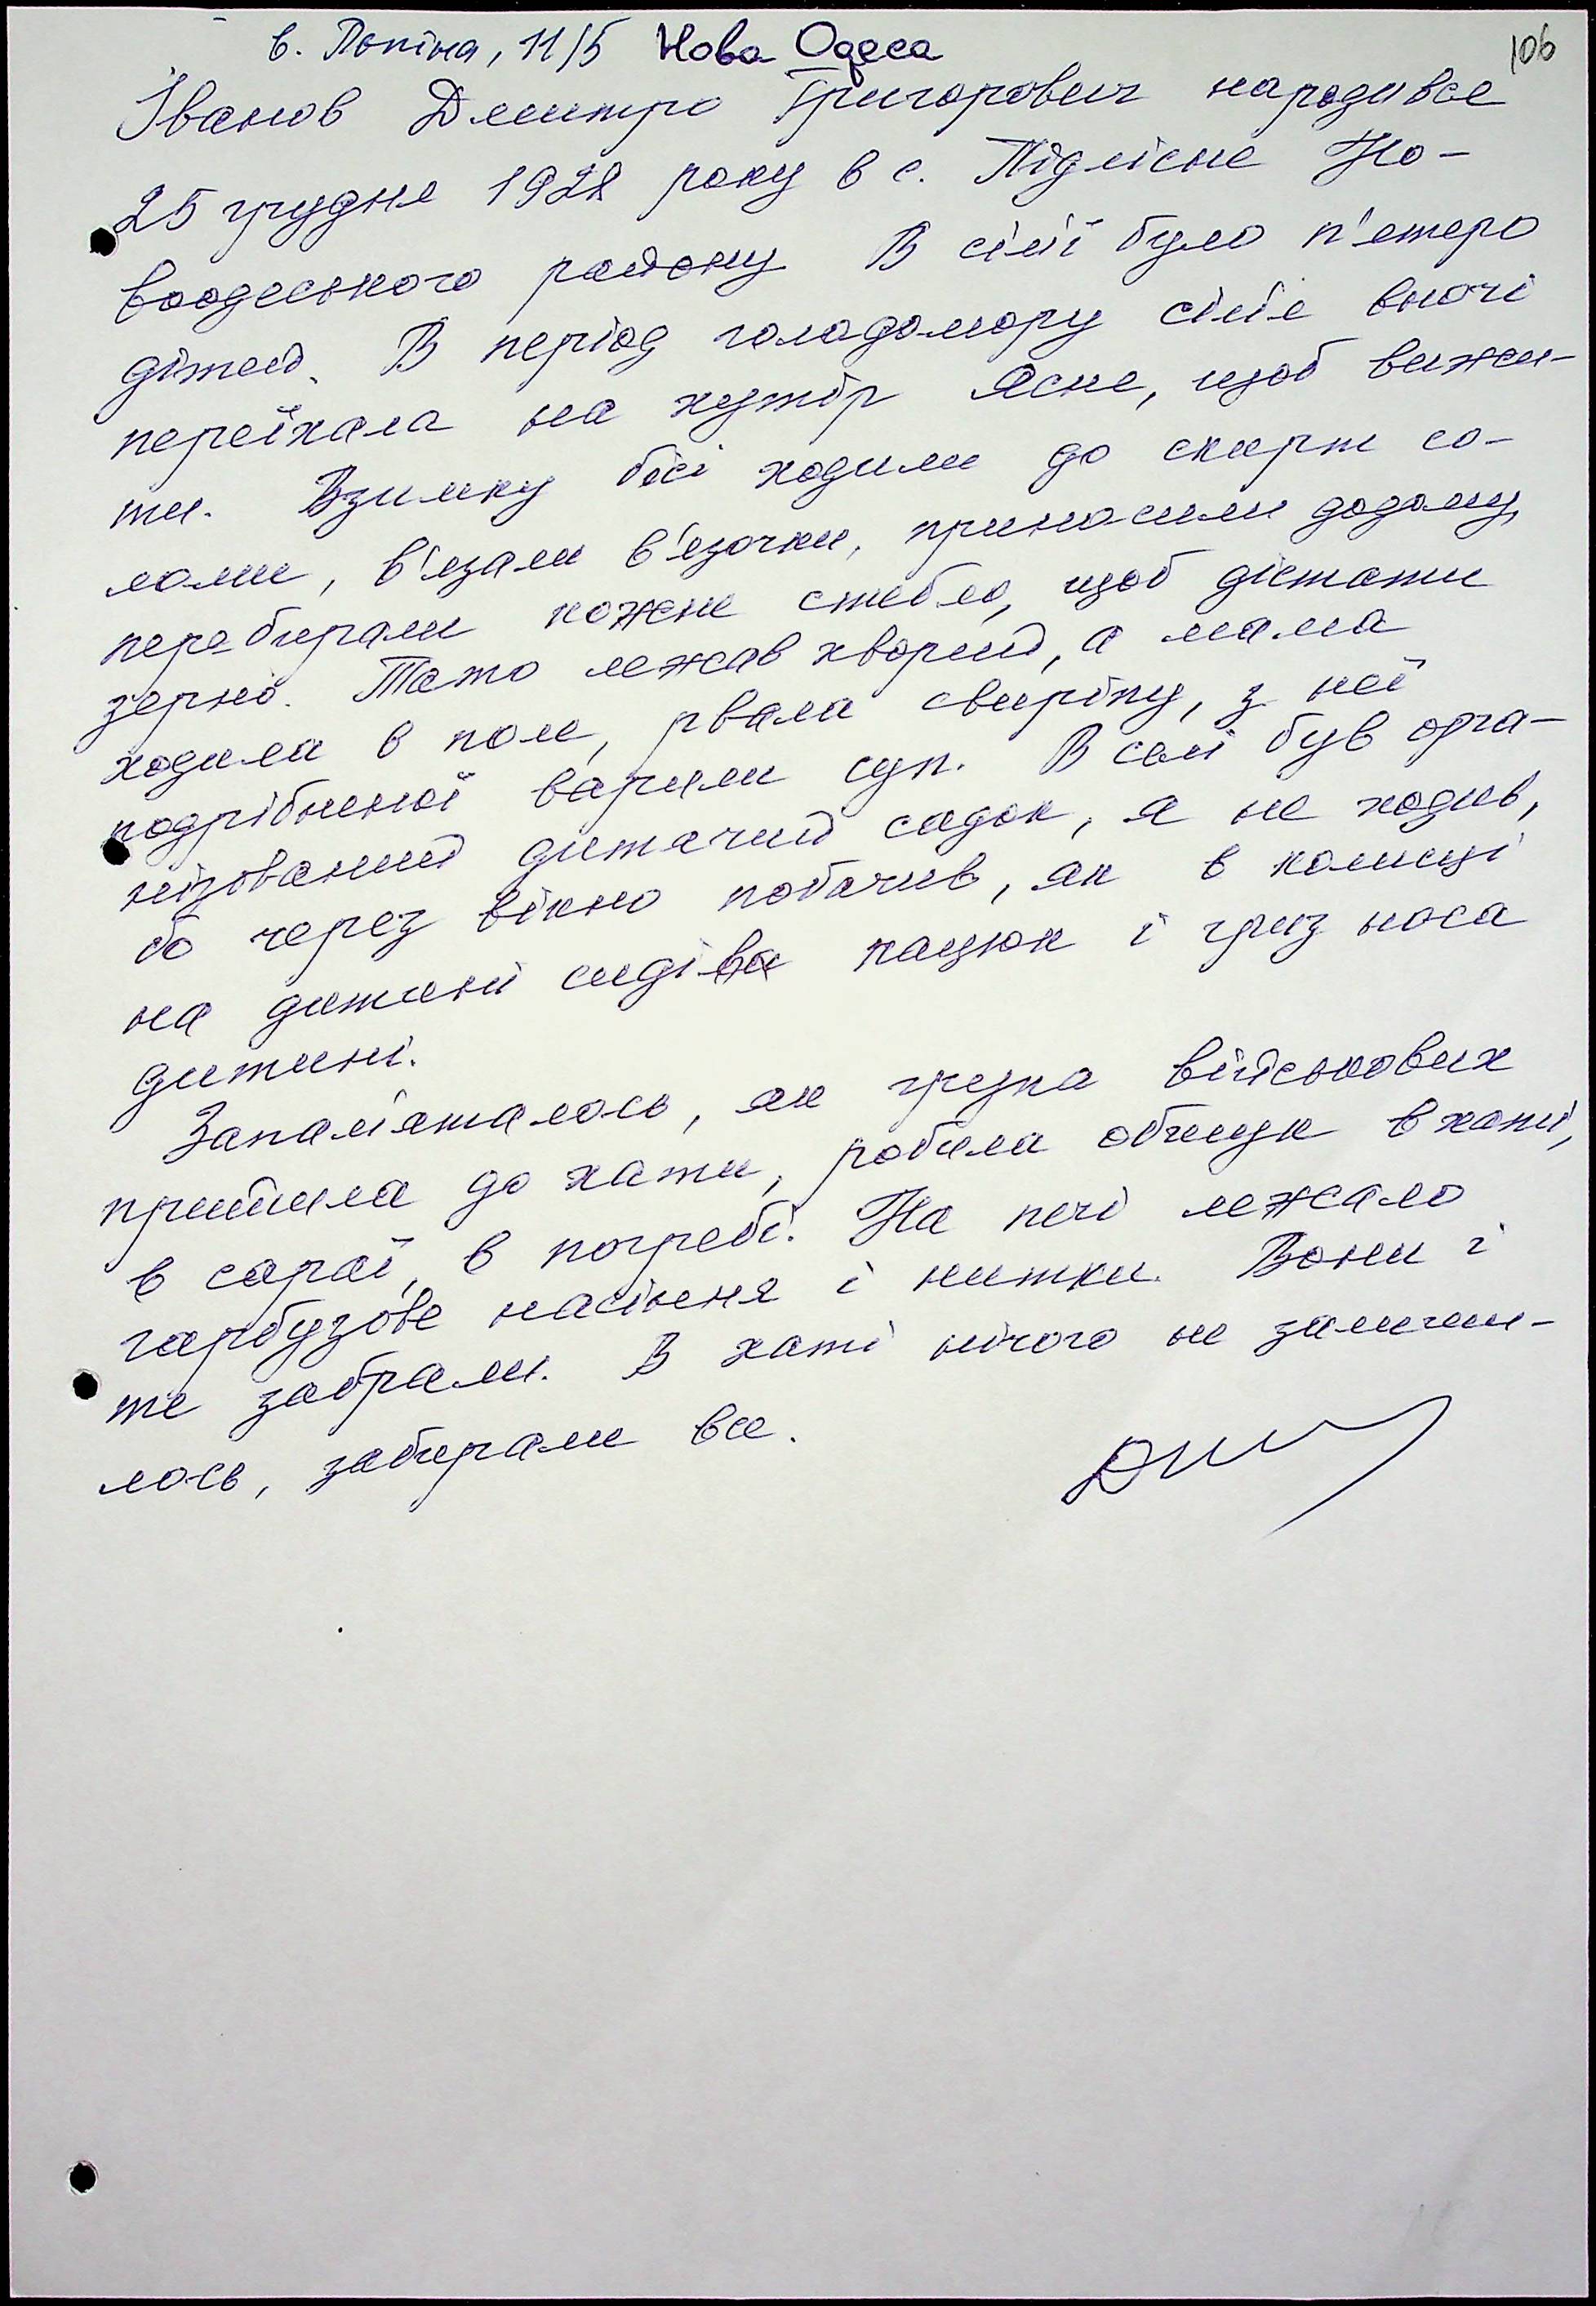 в. Попіна, 11/5 Нова Одеса
106
Іванов Дмитро Григорович народився
25 грудня 1928 року в с. Підлісне Но-
воодеського району В сім'ї було п'ятеро
дітей. В період голодомору сім'я вночі
переїхала на хутір Ясне, щоб вижи-
ти. Взимку всі ходили до скирт со-
ломи, в'язали в'язочки, приносили додому,
перебирали кожне стебло, щоб дістати
зерно. Тато лежав хворий, а мама
ходила в поле, рвала свиріпу, з неї
подрібненої варили суп. В селі був орга-
нізований дитячий садок, я не ходив,
бо через вікно побачив, як в колисці
на дитині сидів пацюк і гриз носа
дитині.
Запам'яталось, як група військових
прийшла до хати, робила обшук в хаті,
в сараї, в погребі. На печі лежало
гарбузове насіння і нитки. Вони і
те забрали. В хаті нічого не залиши-
лось, забирали все.